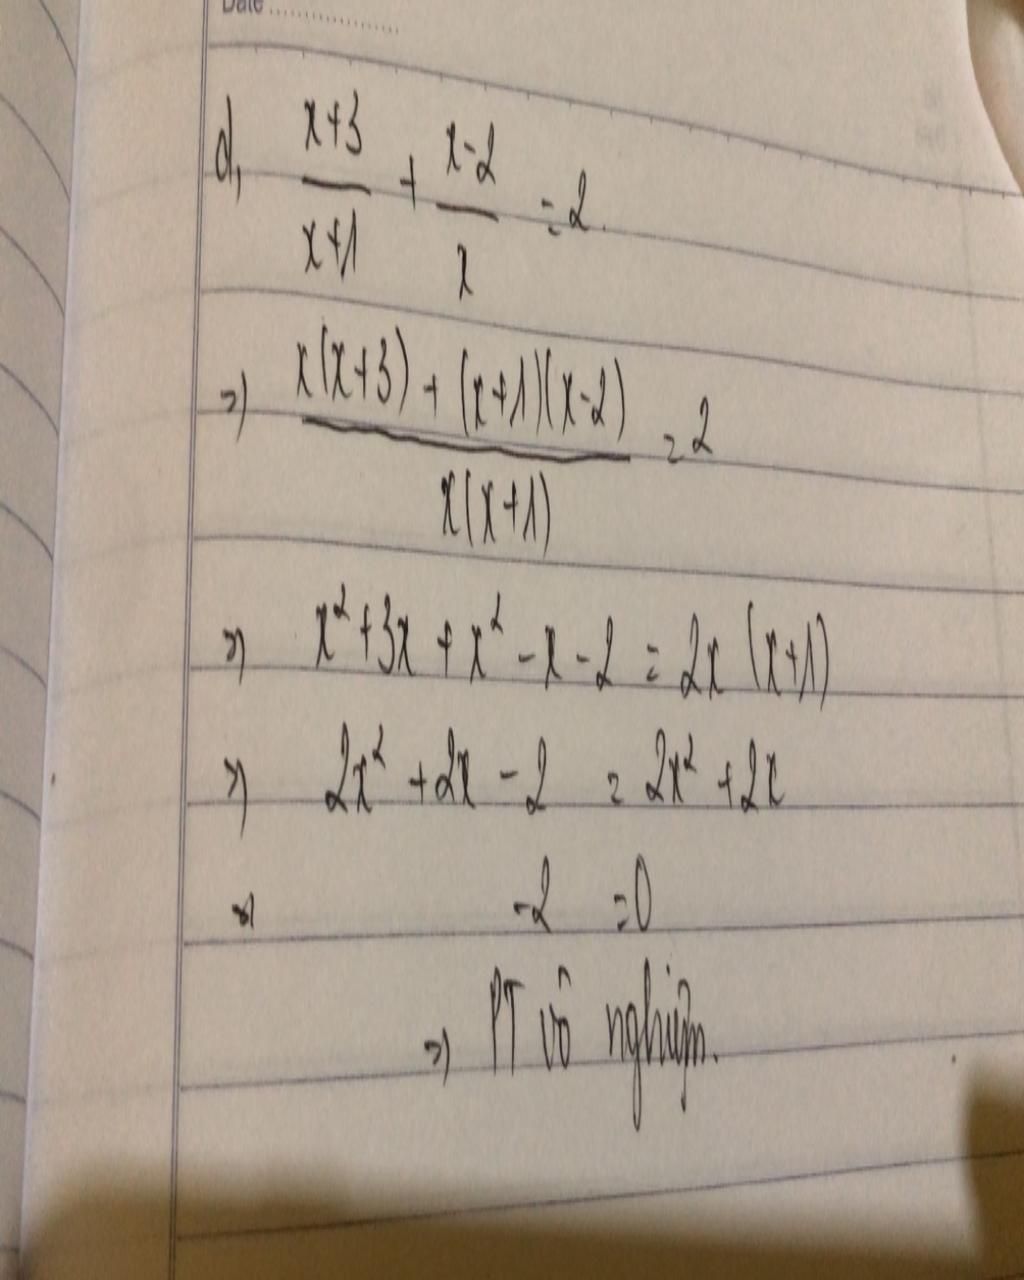 Date ..................
d, (x+3)/(x+1) + (x-2)/x = 2.
=> (x(x+3) + (x+1)(x-2))/(x(x+1)) = 2
=> x² + 3x + x² - x - 2 = 2x (x+1)
=> 2x² + 2x - 2 = 2x² + 2x
=> -2 = 0
=> PT vô nghiệm.